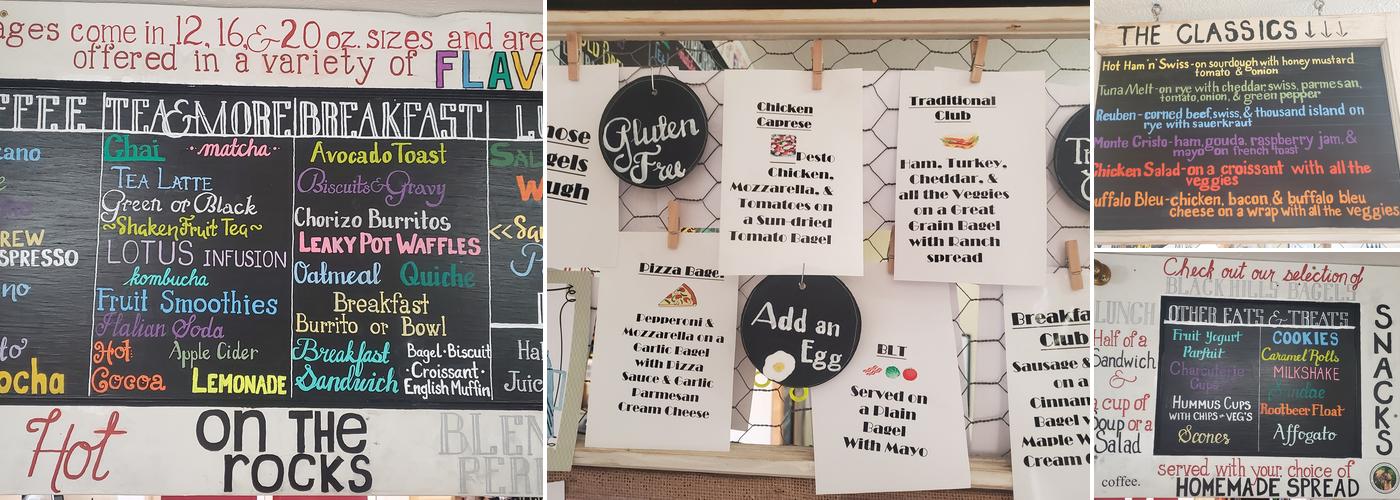 ages come in 12, 16, & 20 oz. sizes and are
offered in a variety of FLAV
FFEE
cano
REW
SPRESSO
ocha
TEA & MORE
Chai · matcha ·
Tea Latte
Green or Black
~Shaken Fruit Tea~
LOTUS INFUSION
kombucha
Fruit Smoothies
Italian Soda
Hot Apple Cider
Cocoa LEMONADE
BREAKFAST
Avocado Toast
Biscuits & Gravy
Chorizo Burritos
LEAKY POT WAFFLES
Oatmeal Quiche
Breakfast
Burrito or Bowl
Breakfast Bagel · Biscuit
Sandwich · Croissant ·
English Muffin
Hot
ON THE
ROCKS
BLEN
Gluten
Free
Chicken
Caprese
Pesto
Chicken,
Mozzarella, &
Tomatoes on
a Sun-dried
Tomato Bagel
Traditional
Club
Ham, Turkey,
Cheddar, &
all the Veggies
on a Great
Grain Bagel
with Ranch
spread
Pizza Bage
Pepperoni &
Mozzarella on a
Garlic Bagel
with Pizza
Sauce & Garlic
Parmesan
Cream Cheese
Add an
Egg
BLT
Served on
a Plain
Bagel
With Mayo
Breakfa
Club
Sausage &
on a
Cinnam
Bagel w
Maple W
Cream C
THE CLASSICS ↓↓↓
Hot Ham 'n' Swiss - on sourdough with honey mustard
tomato & onion
Tuna Melt - on rye with cheddar, swiss, parmesan,
tomato, onion, & green pepper
Reuben - corned beef, swiss, & thousand island on
rye with sauerkraut
Monte Cristo - ham, gouda, raspberry jam, &
mayo on french toast
Chicken Salad - on a croissant with all the
veggies
uffalo Bleu - chicken, bacon & buffalo bleu
cheese on a wrap with all the veggies
Check out our selection of
BLACK HILLS BAGELS
LUNCH
Half of a
Sandwich
&
a cup of
soup or a
Salad
coffee.
OTHER EATS & TREATS
Fruit Yogurt
Parfait
Charcuterie
Cups
HUMMUS CUPS
WITH CHIPS + VEG'S
Scones
COOKIES
Caramel Rolls
MILKSHAKE
Sundae
Rootbeer Float
Affogato
SNACKS
served with your choice of
HOMEMADE SPREAD